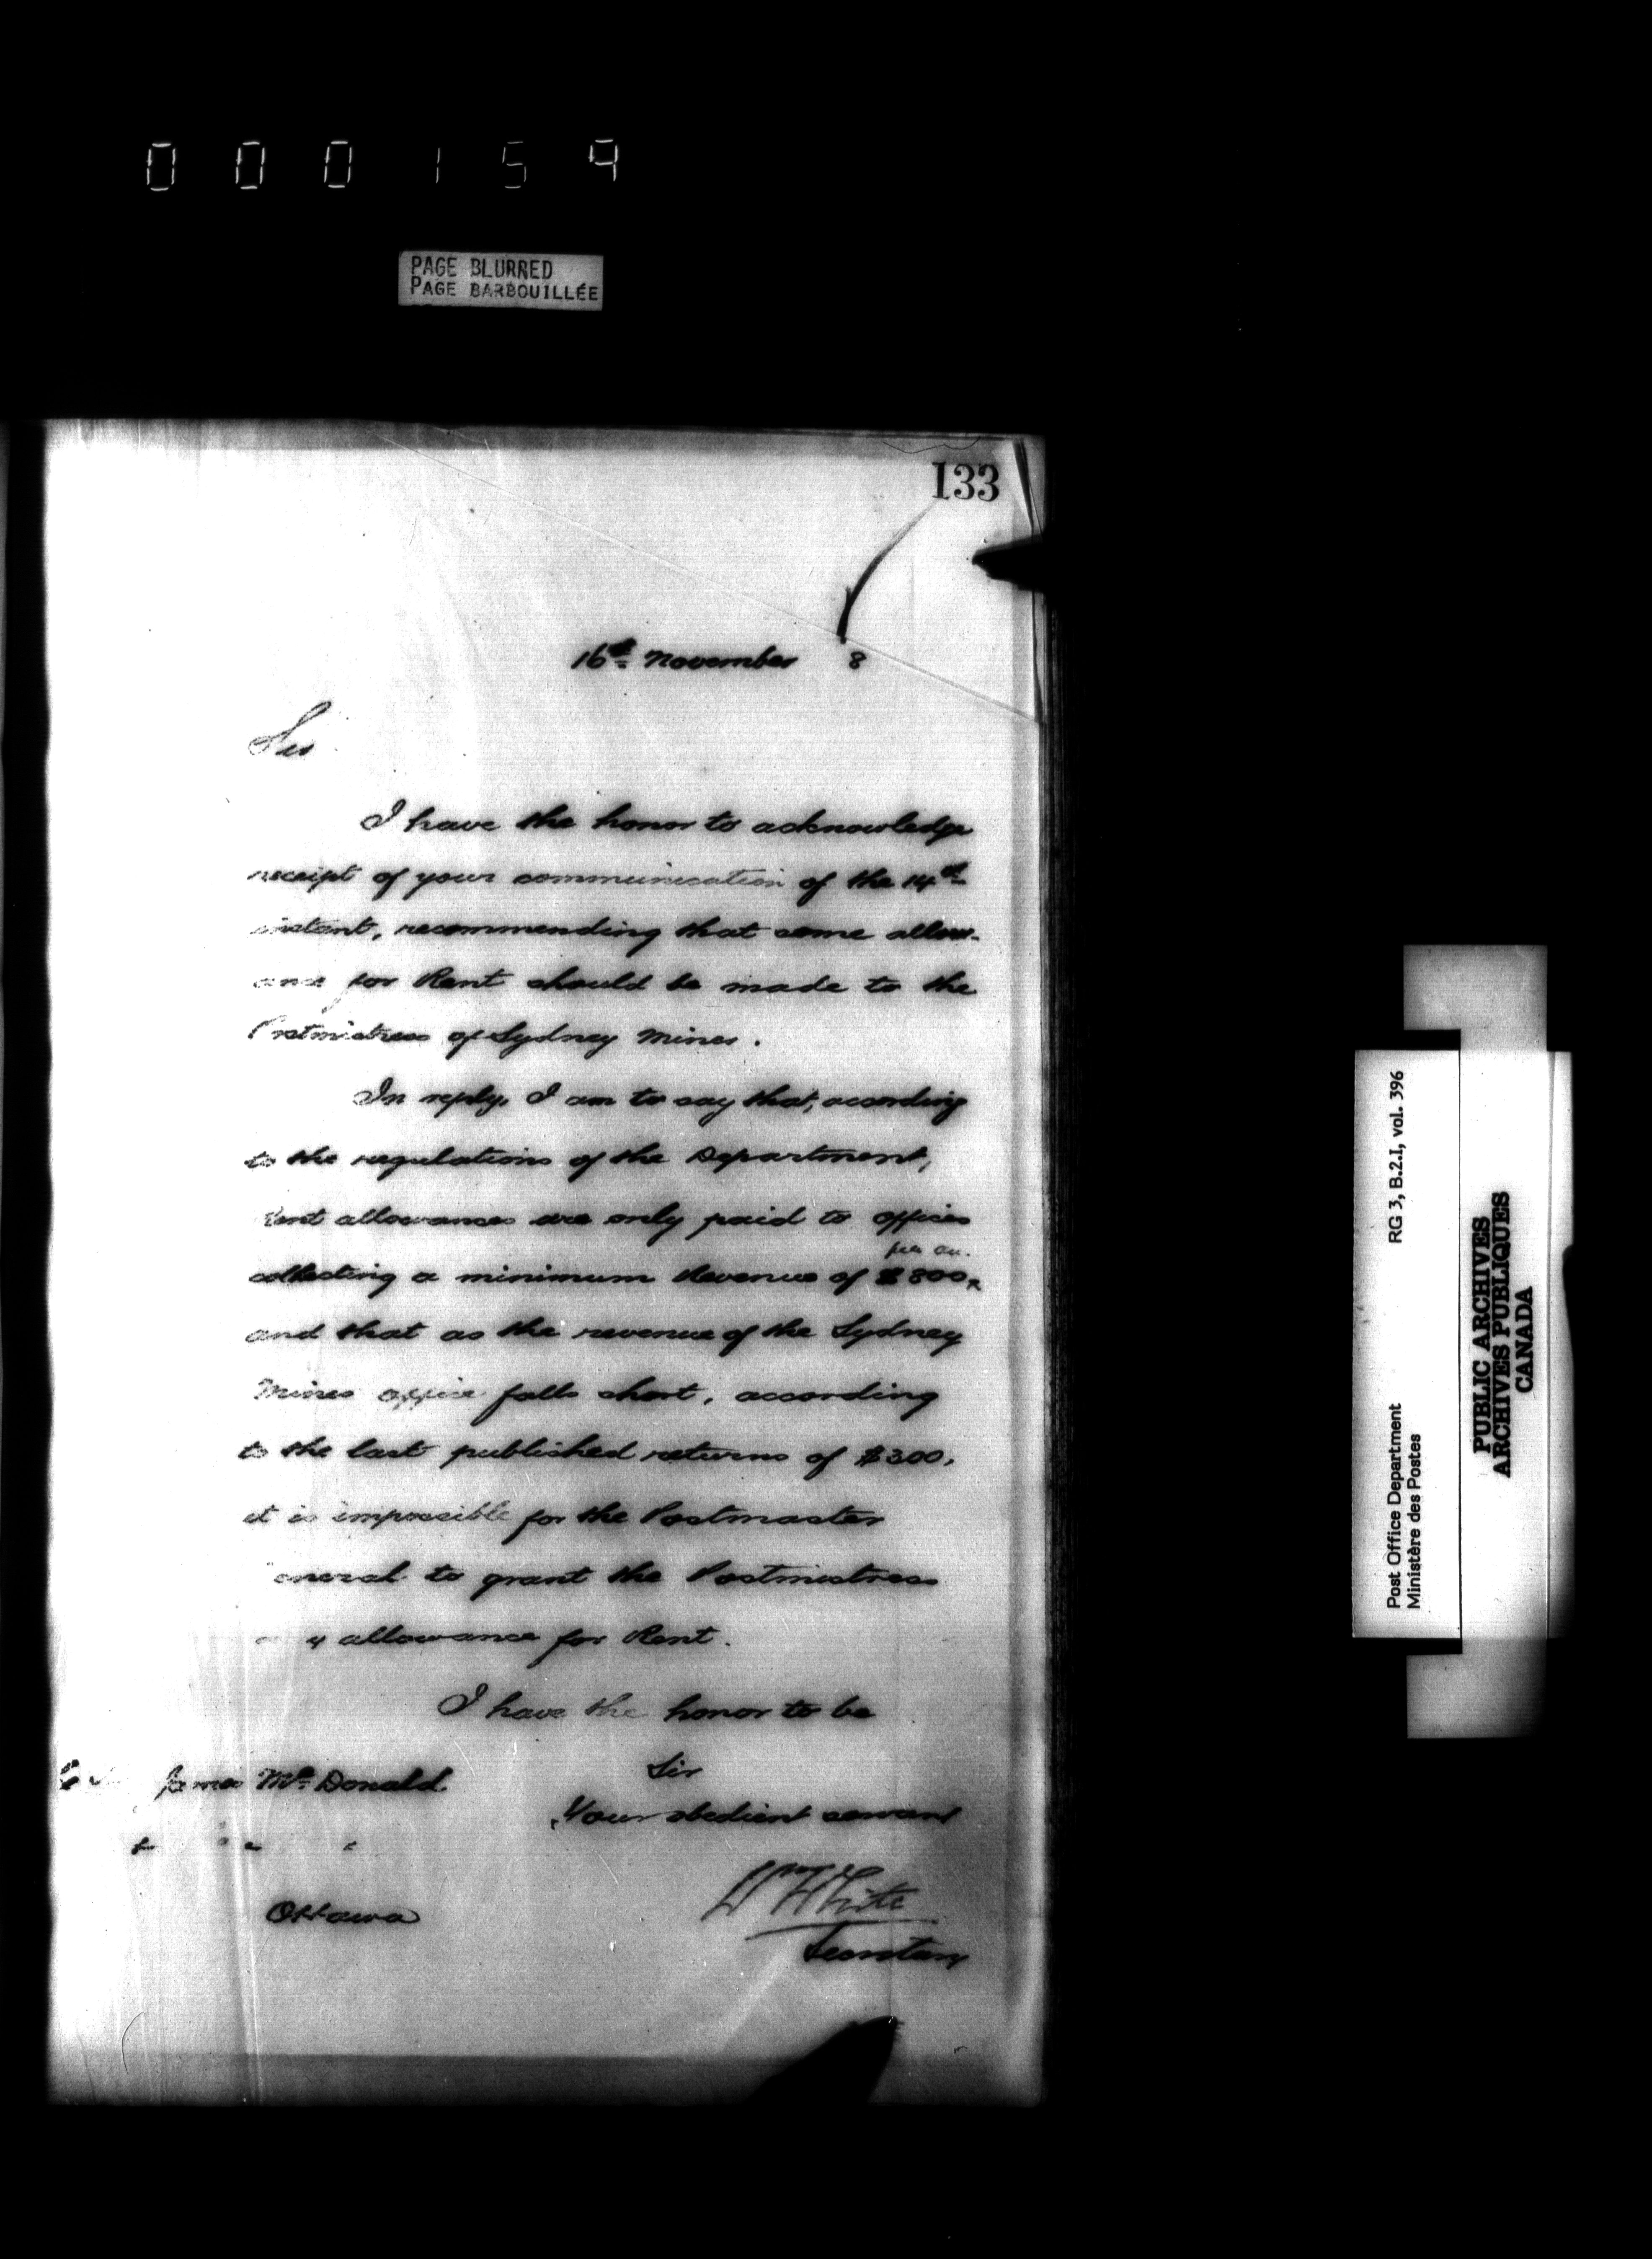 000159
PAGE BLURRED
PAGE BARBOUILLÉE
133
16th November 8
Sir
I have the honor to acknowledge
receipt of your communication of the 14th
instant, recommending that some allow-
ance for Rent should be made to the
Postmistress of Sydney Mines.
In reply, I am to say that, according
to the regulations of the Department,
Rent allowances are only paid to offices
per an.
collecting a minimum Revenue of $800,
and that as the revenue of the Sydney
Mines office falls short, according
to the last published returns of $300,
it is impossible for the Postmaster
eneral to grant the Postmistress
any allowance for Rent.
I have the honor to be
Sir
James McDonald
Your obedient servant
Wm White
Ottawa
Secretary
RG 3, B.2.I, vol. 396
Post Office Department
Ministère des Postes
PUBLIC ARCHIVES
ARCHIVES PUBLIQUES
CANADA